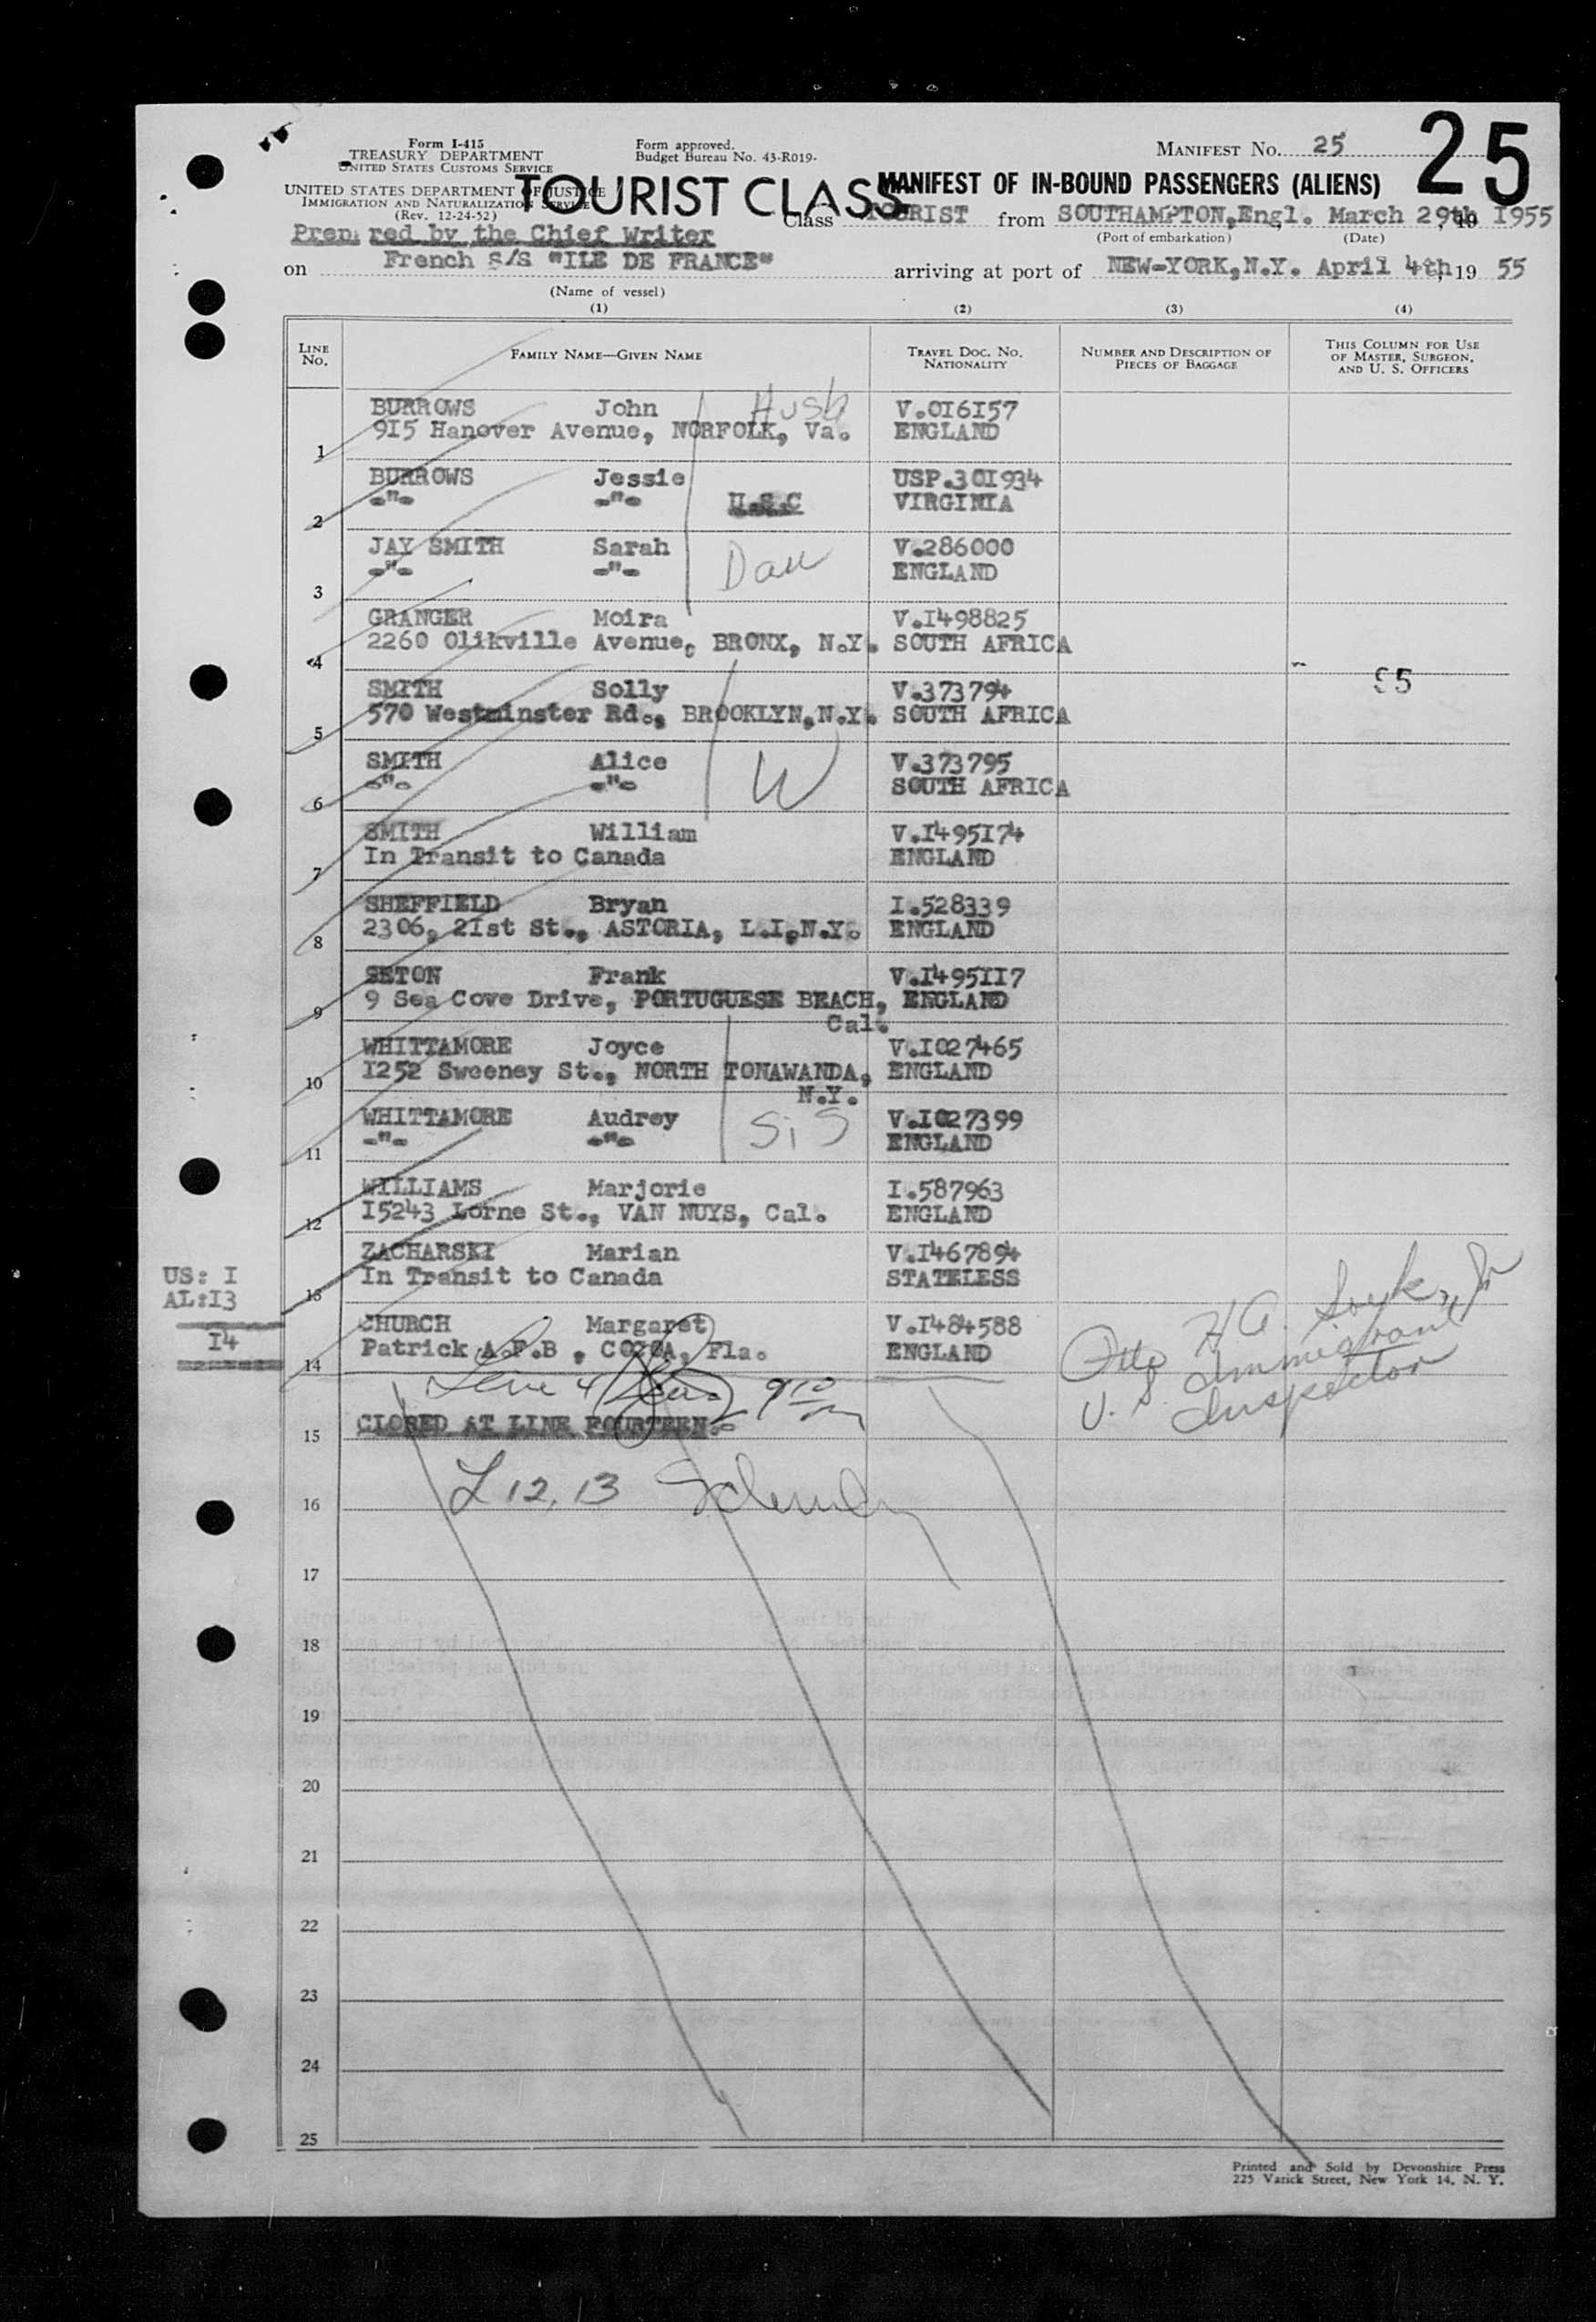 25
Form I-415
TREASURY DEPARTMENT
UNITED STATES CUSTOMS SERVICE
UNITED STATES DEPARTMENT OF JUSTICE
IMMIGRATION AND NATURALIZATION SERVICE
(Rev. 12-24-52)
Form approved.
Budget Bureau No. 43-R019.
MANIFEST No. 25
TOURIST CLASS
MANIFEST OF IN-BOUND PASSENGERS (ALIENS)
Class TOURIST from SOUTHAMPTON,Engl. March 29th 19 1955
(Port of embarkation) (Date)
Prepared by the Chief Writer
on French S/S "ILE DE FRANCE" arriving at port of NEW-YORK,N.Y. April 4th, 19 55
(Name of vessel)
(1) (2) (3) (4)
LINE No. FAMILY NAME—GIVEN NAME TRAVEL DOC. No. NATIONALITY NUMBER AND DESCRIPTION OF PIECES OF BAGGAGE THIS COLUMN FOR USE OF MASTER, SURGEON, AND U. S. OFFICERS
BURROWS John Husb V.016157
1 915 Hanover Avenue, NORFOLK, Va. ENGLAND
BURROWS Jessie USP.301934
2 -"- -"- U.S.C VIRGINIA
JAY SMITH Sarah Dau V.286000
3 -"- -"- ENGLAND
GRANGER Moira V.I498825
4 2260 Olikville Avenue, BRONX, N.Y. SOUTH AFRICA
SMITH Solly V.373794
5 570 Westminster Rd., BROOKLYN,N.Y. SOUTH AFRICA
SMITH Alice W V.373795
6 -"- -"- SOUTH AFRICA
SMITH William V.I495I74
7 In Transit to Canada ENGLAND
SHEFFIELD Bryan I.528339
8 2306, 2Ist St., ASTORIA, L.I,N.Y. ENGLAND
SETON Frank V.I495II7
9 9 Sea Cove Drive, PORTUGUESE BEACH, ENGLAND
Cal.
WHITTAMORE Joyce V.I027465
10 I252 Sweeney St., NORTH TONAWANDA, ENGLAND
N.Y.
WHITTAMORE Audrey Sis V.I027399
11 -"- -"- ENGLAND
WILLIAMS Marjorie I.587963
12 I5243 Lorne St., VAN NUYS, Cal. ENGLAND
ZACHARSKI Marian V.I467894
13 In Transit to Canada STATELESS
CHURCH Margaret V.I484588
14 Patrick A.F.B , COCOA, Fla. ENGLAND
US: I
AL:I3
I4
U. S. Immigrant
Inspector
15 CLOSED AT LINE FOURTEEN.-
16 L 12, 13
17
18
19
20
21
22
23
24
25
Printed and Sold by Devonshire Press
225 Varick Street, New York 14, N. Y.